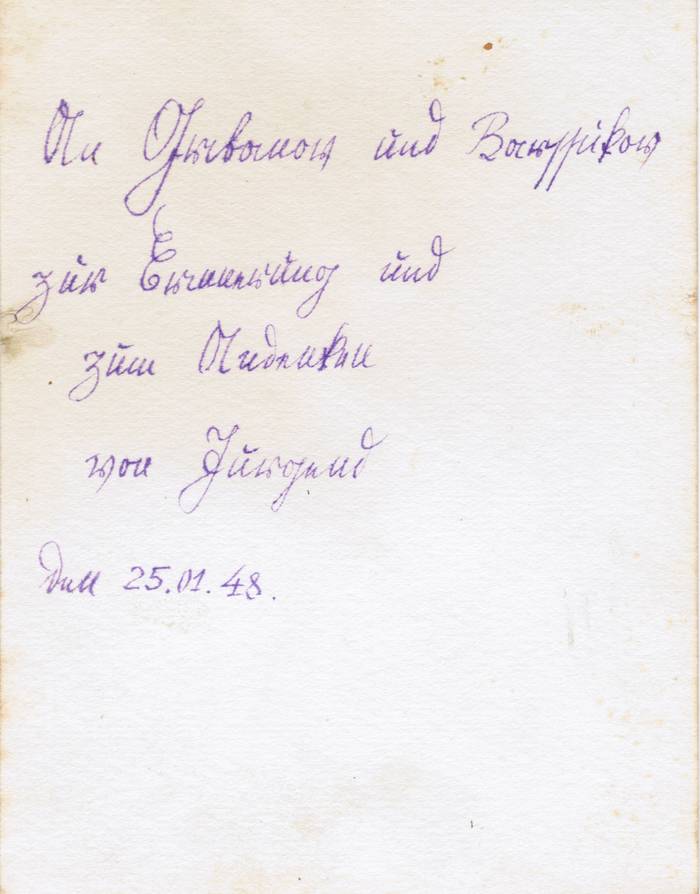 An Grabanow und
zur Erinnerung und
zum Andenken
von
Den 25.01.48.